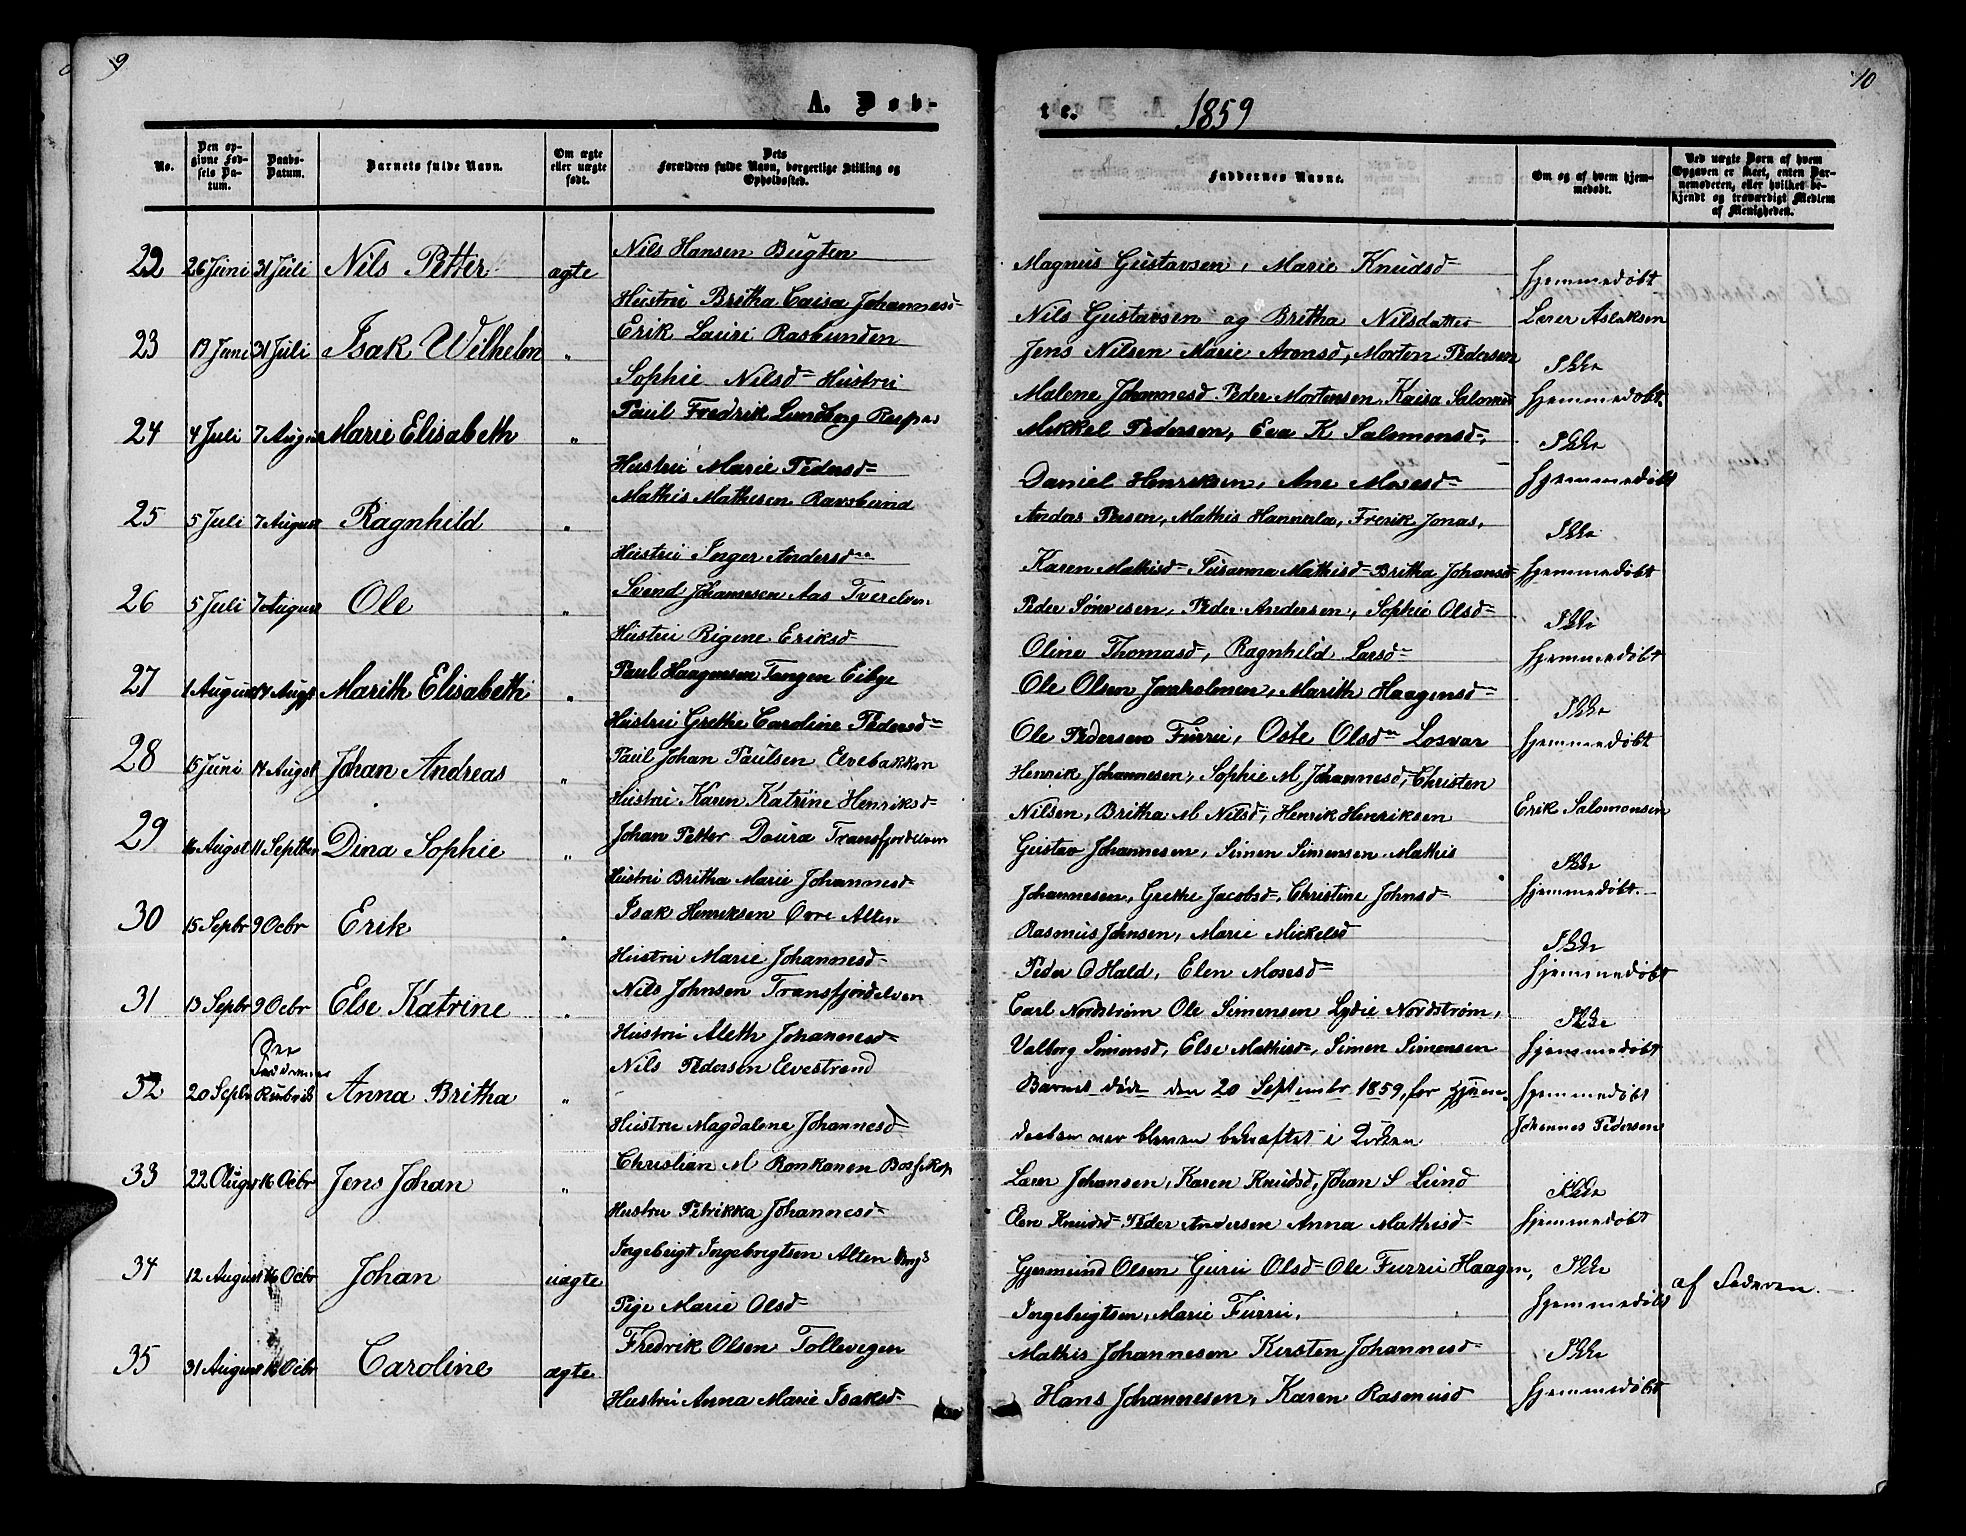 9
A. Døb-
No.
Den op-
givne Fød-
sels Da-
tum.
Daabs-
Datum.
Barnets fulde Navn.
Om ægte
eller uægte
født.
Dets
Forældres fulde Navn, borgerlige Stilling og
Opholdssted.
22 26 Juni 31 Juli Nils Petter ægte Nils Hansen Bugten
Hustru Britha Caisa Johannesd
23 19 Juni 31 Juli Isak Wilhelm " Erik Lauri Rasbunden
Sophie Nilsd Hustru
24 4 Juli 7 August Marie Elisabeth " Paul Fredrik Lundberg
Hustru Marie Pedersd
25 5 Juli 7 August Ragnhild " Mathis Mathisen
Hustru Inger Andersd
26 5 Juli 7 August Ole " Svend Johannesen Aas Tverelven
Hustru Rigene Eriksd
27 1 August 14 Augst Marith Elisabeth " Paul Haagensen Tangen Eibye
Hustru Grethe Caroline Pedersd
28 15 Juni 14 Augst Johan Andreas " Paul Johan Paulsen Elvebakken
Hustru Karen Katrine Henriksd
29 16 Augst 11 Septber Dina Sophie " Johan Petter Doura Transfjordelven
Hustru Britha Marie Johannesd
30 15 Sepbr 9 Ocbr Erik " Isak Henriksen Övre Alten
Hustru Marie Johannesd
31 13 Sepbr 9 Ocbr Else Katrine " Nils Johnsen Transfjordelven
Hustru Aleth Johannesd
32 20 Sepbr Rubrik Anna Britha " Nils Pedersen Elvestrand
Hustru Magdalene Johannesd
33 22 Augst 16 Ocbr Jens Johan " Christian M Ronkanen Bossekop
Hustru Petrikka Johannesd
34 12 August 16 Ocbr Johan uægte Ingebrigt Ingebrigtsen Alten
Pige Marie Olsd
35 31 August 16 Ocbr Caroline ægte Fredrik Olsen Tollevigen
Hustru Anna Marie Isaksd
10
te. 1859
Faddernes Navne.
Om og af hvem hjem-
medøbt.
Ved uægte Børn af hvem
Opgaven er skeet, enten Bar-
nemoderen, eller hvilket be-
kjendt og troværdigt Medlem
af Menigheden.
Magnus Gustavsen, Marie Knudsd hjemmedøbt
Nils Gustavsen og Britha Nilsdatter Lærer Aslaksen
Jens Nilsen Marie Aronsd, Morten Pedersen Ikke
Malene Johannesd Peder Mortensen, Kaisa Salomsd hjemmedøbt
Mekkel Pedersen, Eva K Salomonsd, Ikke
Daniel Henriksen, Ane Mosesd hjemmedøbt
Anders Persen, Mathis Hannerla, Frerik Jonas, Ikke
Karen Mathisd Susanna Mathisd Britha Johansd hjemmedøbt
Peder Sørensen, Peder Andersen, Sophie Olsd Ikke
Oline Thomasd, Ragnhild Larsd hjemmedøbt
Ole Olsen Jonholmen, Marith Haagensd Ikke
Ole Pedersen Furru, Oste Olsd Losvar hjemmedøbt
Henrik Johannesen, Sophie M Johannesd, Christen
Nilsen, Britha M Nilsd, Henrik Henriksen Erik Salomonsen
Gustav Johannesen, Simen Simensen Mathis Ikke
Johannesen, Grethe Jacobsd, Christine Johnsd hjemmedøbt
Rasmus Johnsen, Marie Mickelsd Ikke
Peder O Hald, Elen Mosesd hjemmedøbt
Carl Nordstrøm Ole Simensen Lydie Nordstrøm, Ikke
Valborg Simonsd, Else Mathisd, Simen Simensen hjemmedøbt
Barnet døde den 20 Septembr 1859, før hjem- hjemmedøbt
deeben var bleven bekræftet i Kirken Johannes Pedersen
Laren Johansen, Karen Knudsd, Johan S Lund Ikke
Elen Knudsd Peder Andersen Anna Mathisd hjemmedøbt
Gjermund Olsen Guru Olsd Ole Furru Haagen, Ikke
Ingebrigtsen, Marie Furru, hjemmedøbt af Faderen
Mathis Johannesen Kirsten Johannesd Ikke
Hans Johannesen, Karen Rasmusd hjemmedøbt